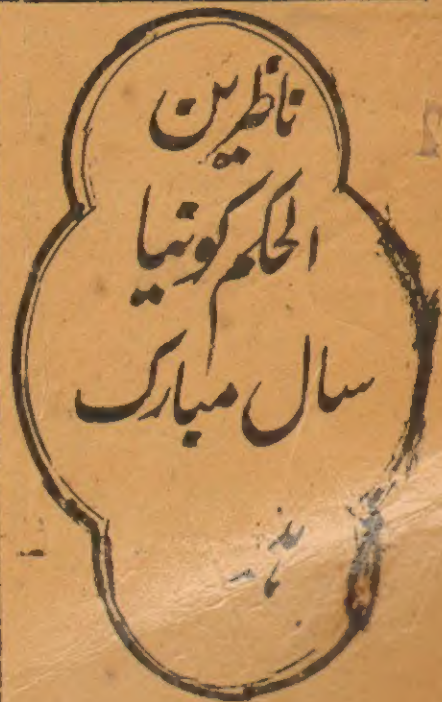 ناظرین
الحکم کو نیا
سال مبارک
ہو۔